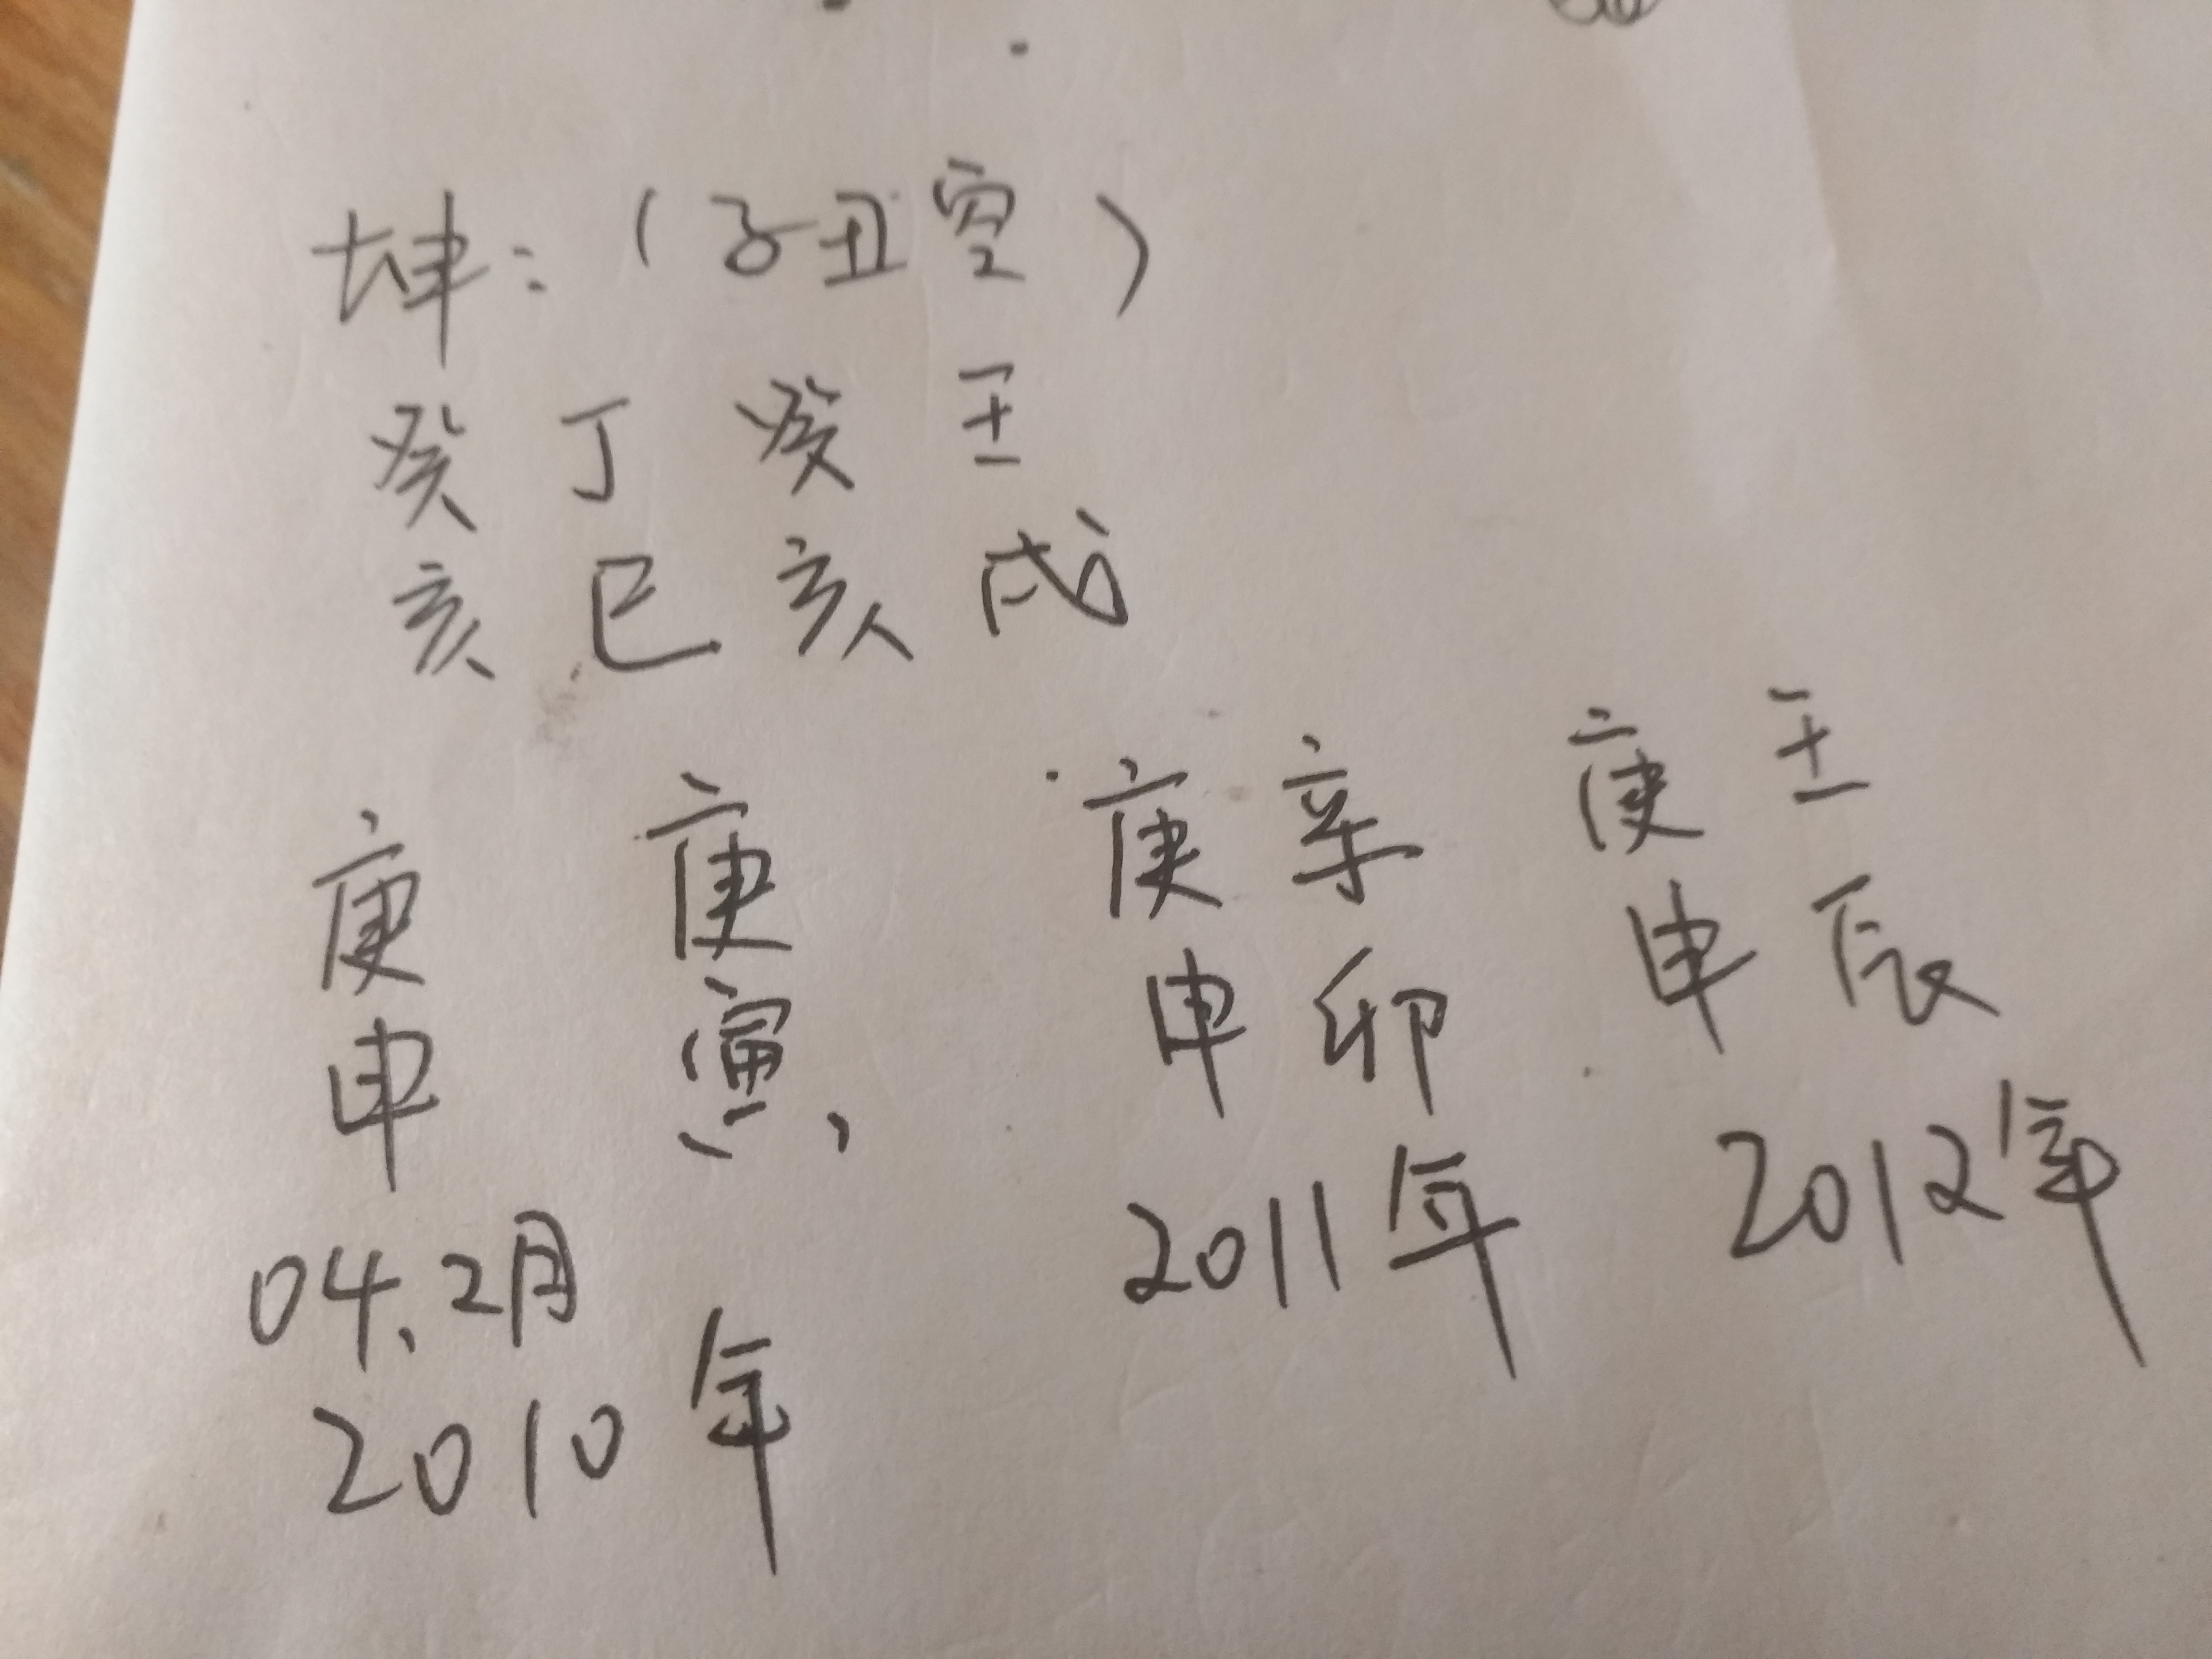 坤:(子丑空)
癸 丁 癸 壬
亥 巳 亥 戌
庚 庚 庚 辛 庚 壬
申 寅、 申 卯 申 辰
04.2月 2011年 2012年
2010年